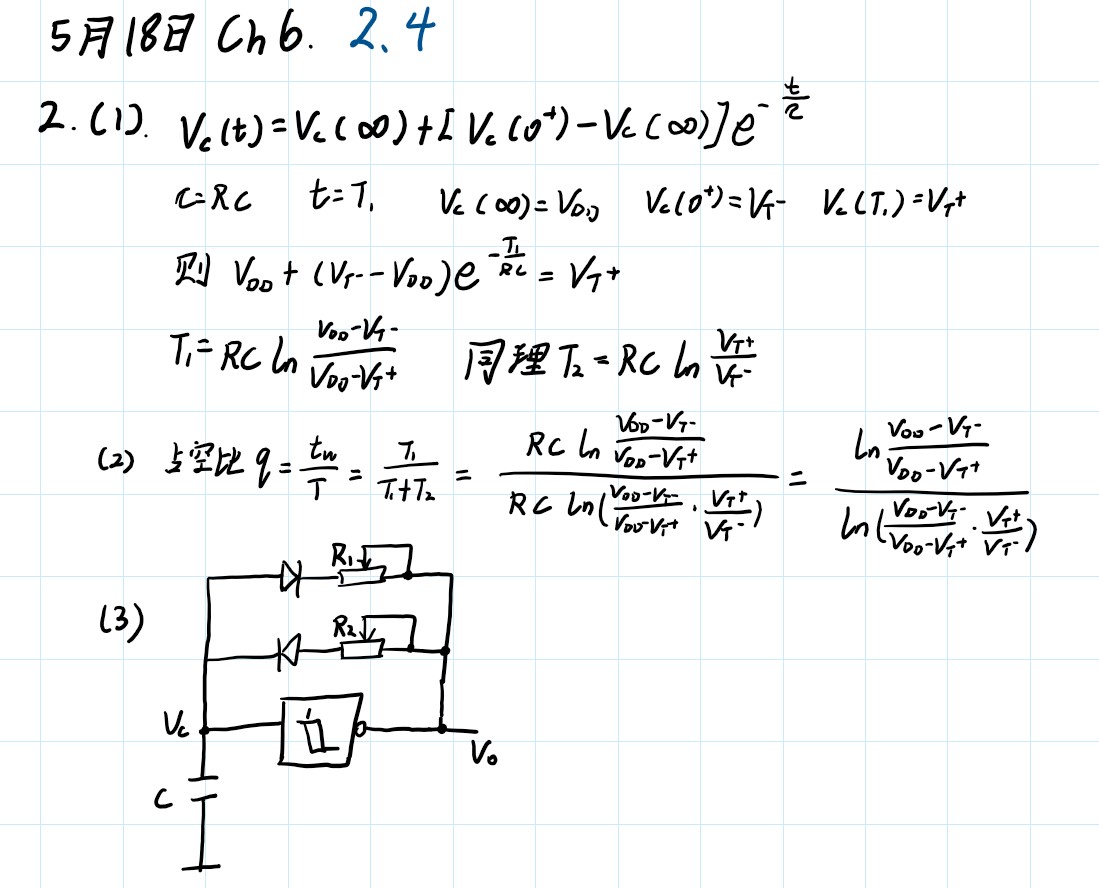 5月18日 Ch 6. 2.4
2.(1). Vc(t)=Vc(∞)+[Vc(0⁺)-Vc(∞)]e^{-t/τ}
τ=RC t=T₁ Vc(∞)=V_DD Vc(0⁺)=V_T- Vc(T₁)=V_T+
则 V_DD+(V_T- - V_DD)e^{-T₁/RC}=V_T+
T₁=RC ln (V_DD-V_T-)/(V_DD-V_T+) 同理 T₂=RC ln V_T+/V_T-
(2) 占空比 q=t_w/T=T₁/(T₁+T₂)=(RC ln (V_DD-V_T-)/(V_DD-V_T+))/(RC ln((V_DD-V_T-)/(V_DD-V_T+)·V_T+/V_T-))=(ln (V_DD-V_T-)/(V_DD-V_T+))/(ln((V_DD-V_T-)/(V_DD-V_T+)·V_T+/V_T-))
(3)
R₁
R₂
Vc
1
Vo
C